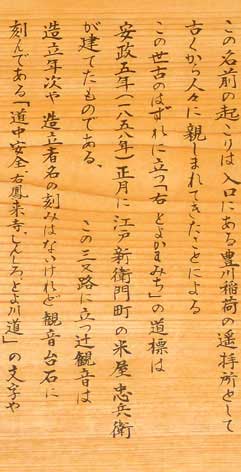 この名前の起こりは入口にある豊川稲荷の遥拝所として
古くから人々に親しまれてきたことによる
この世古のはずれに立つ「右 とよかわみち」の道標は
安政五年(一八五八年)正月に江戸新衛門町の米屋忠兵衛
が建てたものである、 この三叉路に立つ辻観音は
造立年次や 造立者名の刻みはないけれど観音台石に
刻んである「道中安全、右鳳来寺、しんしろ、とよ川道」の文字や